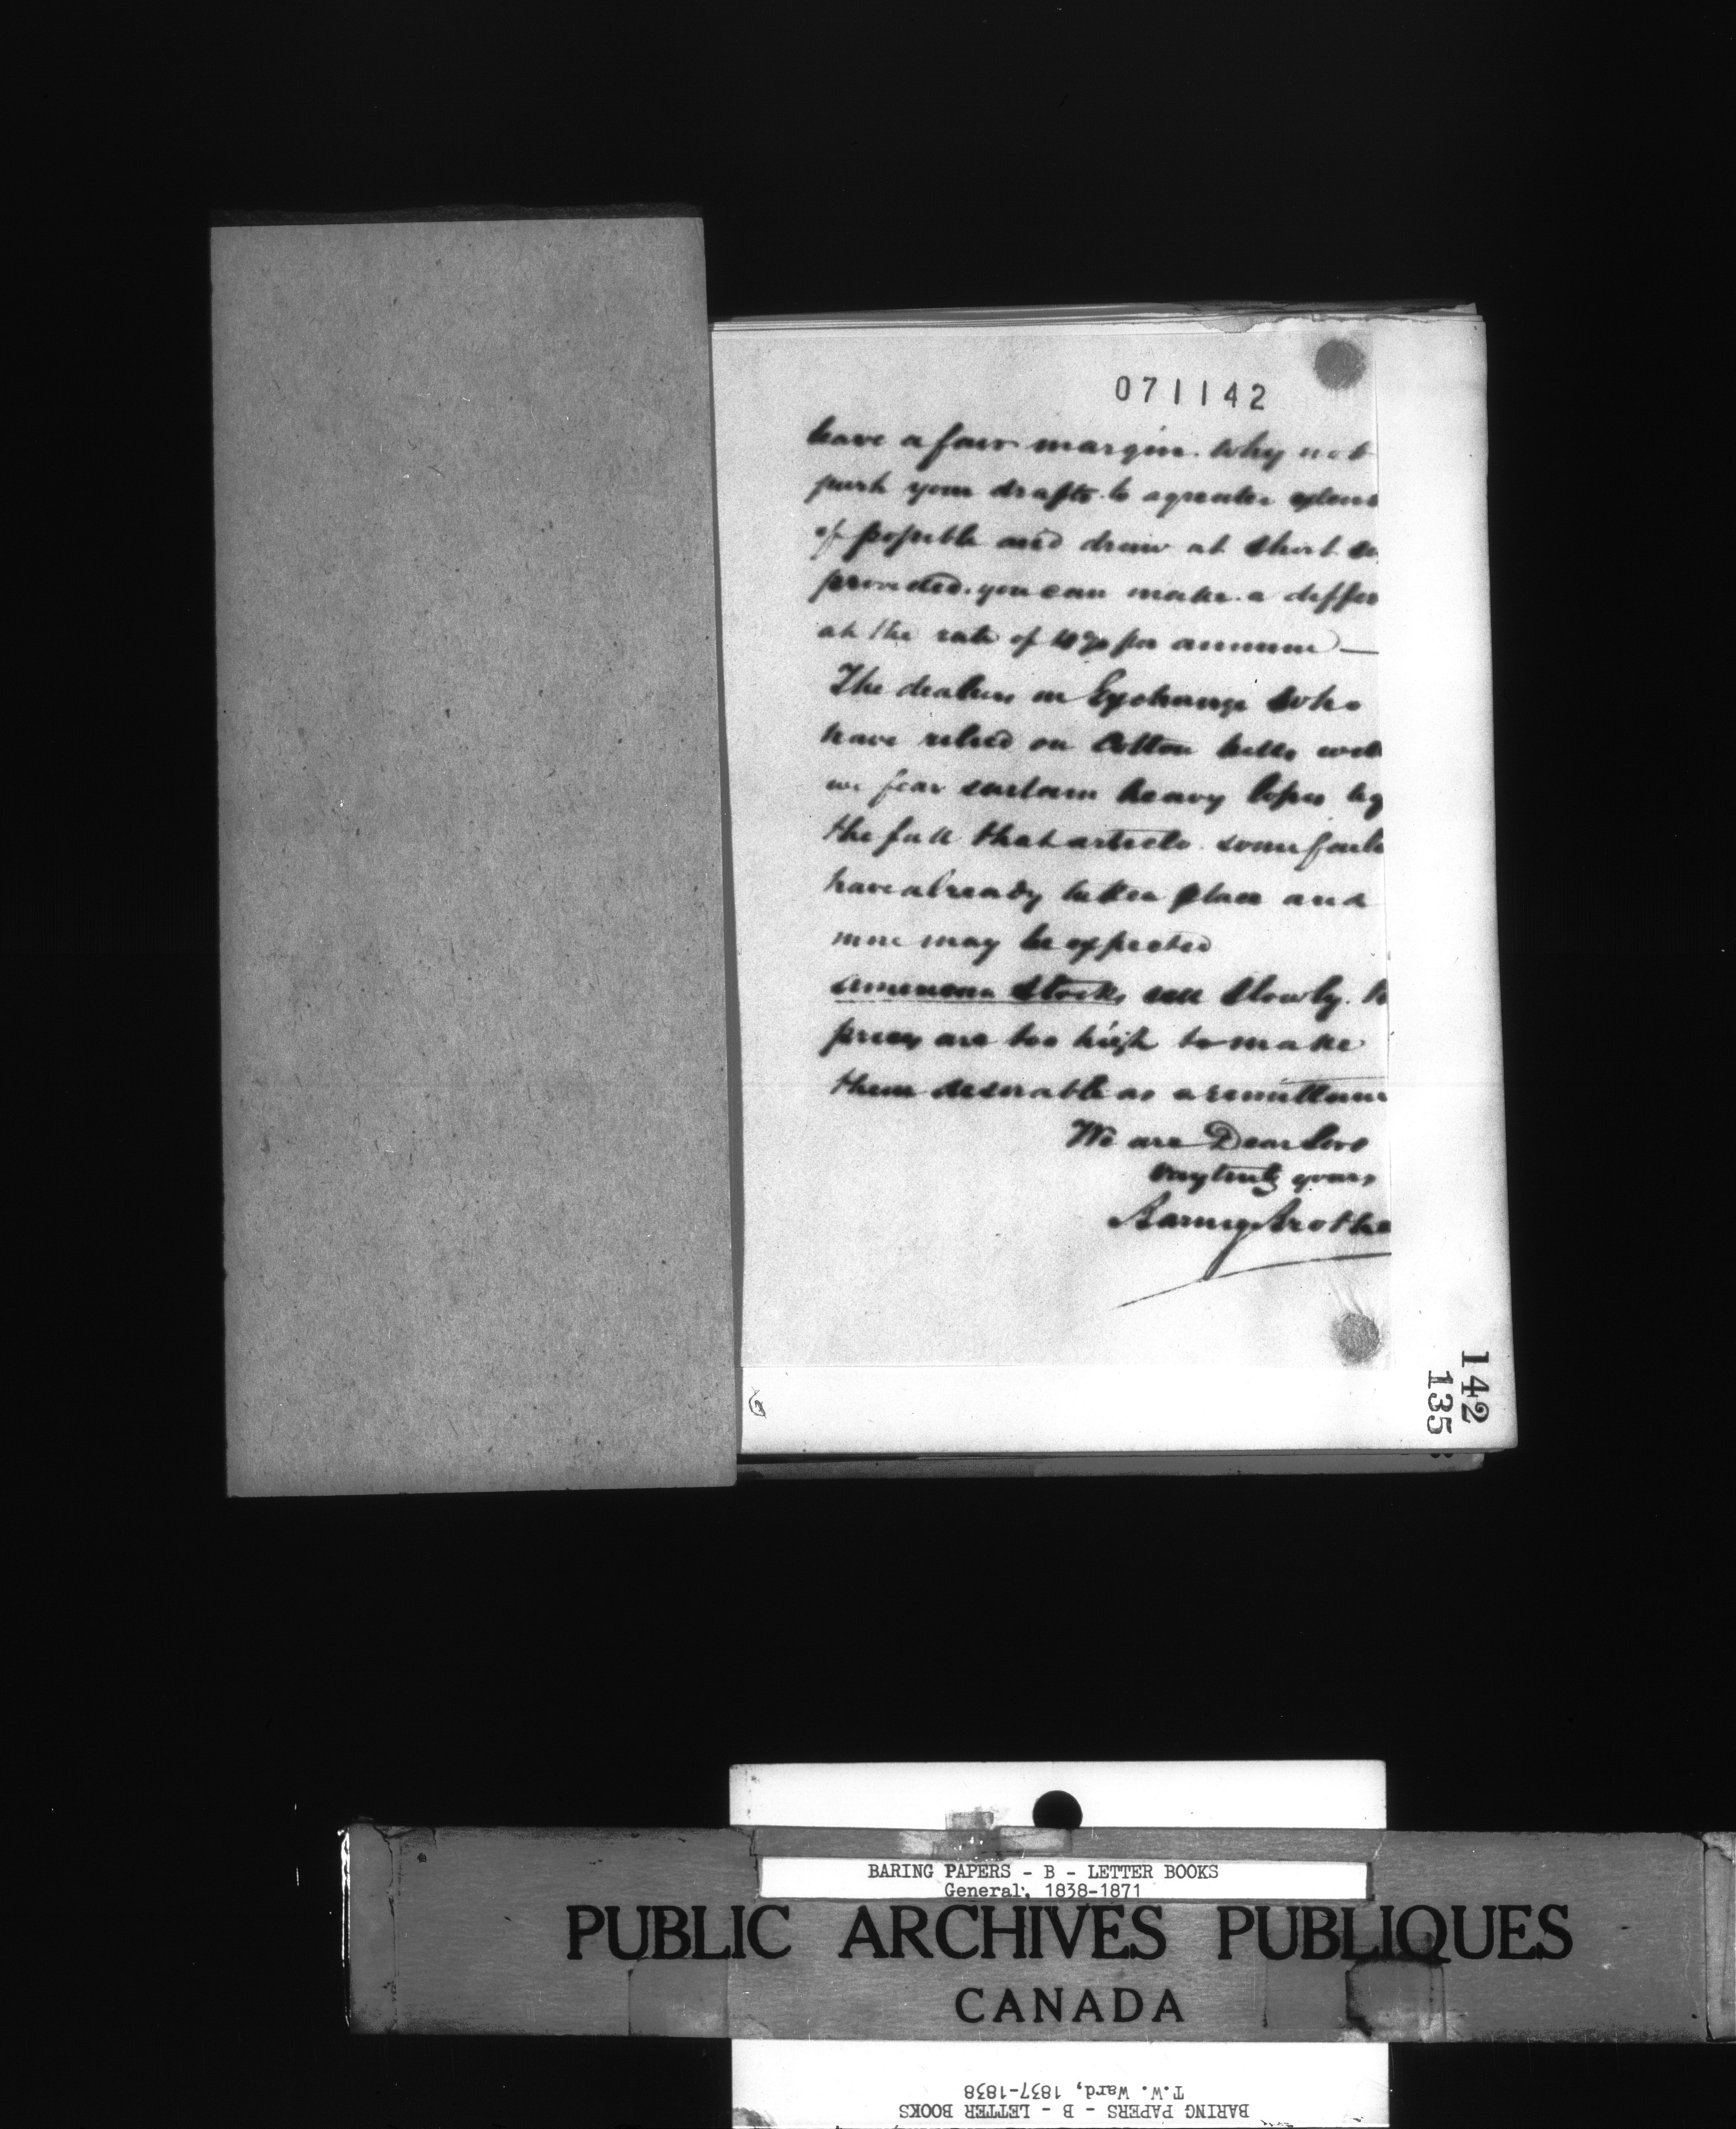 071142
leave a fair margin. Why not
push your drafts to a greater exten
if possible and draw at short
provided you can make a differ
at the rate of per annum —
The dealers in Exchange who
have relied on Cotton bills will
we fear sustain heavy losses by
the fall that article some fail
have already taken place and
more may be expected
American Stocks sell slowly.
prices are too high to make
them desirable as a remittanc
We are Dear Sirs
Very truly yours
Baring Brothe
142
135
BARING PAPERS - B - LETTER BOOKS
General, 1838-1871
PUBLIC ARCHIVES PUBLIQUES
CANADA
T.W. Ward, 1837-1838
BARING PAPERS - B - LETTER BOOKS